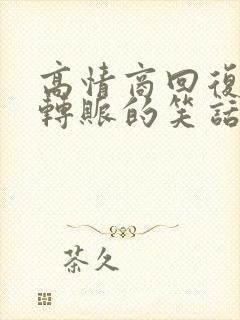 高情商回復
轉賬的笑話
茶久